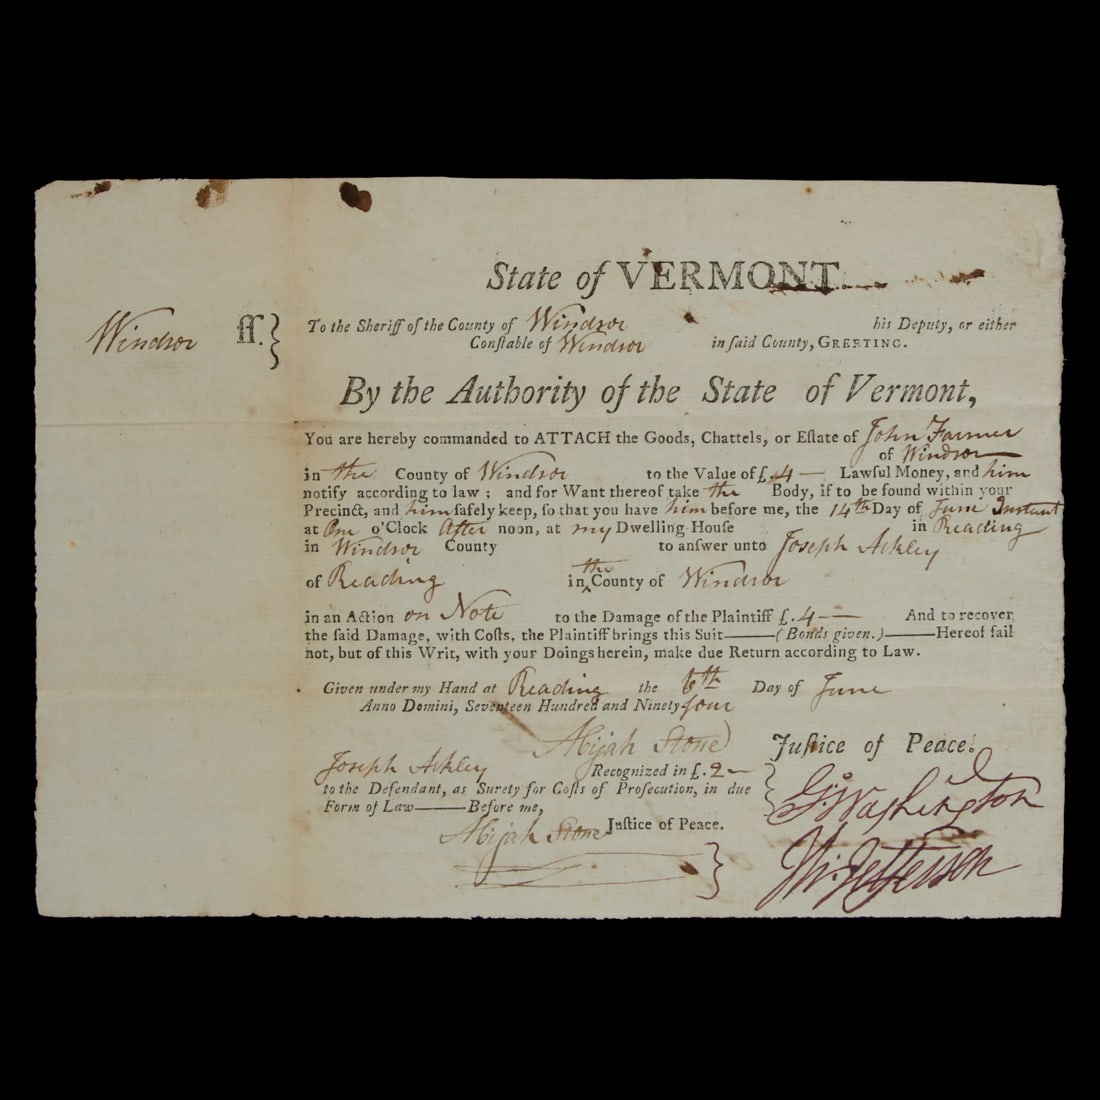 State of VERMONT
Windsor ſſ. } To the Sheriff of the County of Windsor his Deputy, or either
Conſtable of Windsor in ſaid County, GREETING.
By the Authority of the State of Vermont,
You are hereby commanded to ATTACH the Goods, Chattels, or Eſtate of John Farmer
of Windsor
in the County of Windsor to the Value of £.4— Lawful Money, and him
notify according to law; and for Want thereof take the Body, if to be found within your
Precinct, and him ſafely keep, ſo that you have him before me, the 14th Day of June Instant
at One o'Clock After noon, at my Dwelling-Houſe in Reading
in Windsor County to anſwer unto Joseph Ackley
of Reading in the County of Windsor
in an Action on Note to the Damage of the Plaintiff £.4— And to recover
the ſaid Damage, with Coſts, the Plaintiff brings this Suit——(Bonds given.)——Hereof fail
not, but of this Writ, with your Doings herein, make due Return according to Law.
Given under my Hand at Reading the 6th Day of June
Anno Domini, Seventeen Hundred and Ninety-four
Abijah Stone } Juſtice of Peace.
Joseph Ackley Recognized in £.2—
to the Defendant, as Surety for Coſts of Proſecution, in due
Form of Law——Before me,
Abijah Stone Juſtice of Peace.
Go: Washington
Th: Jefferson